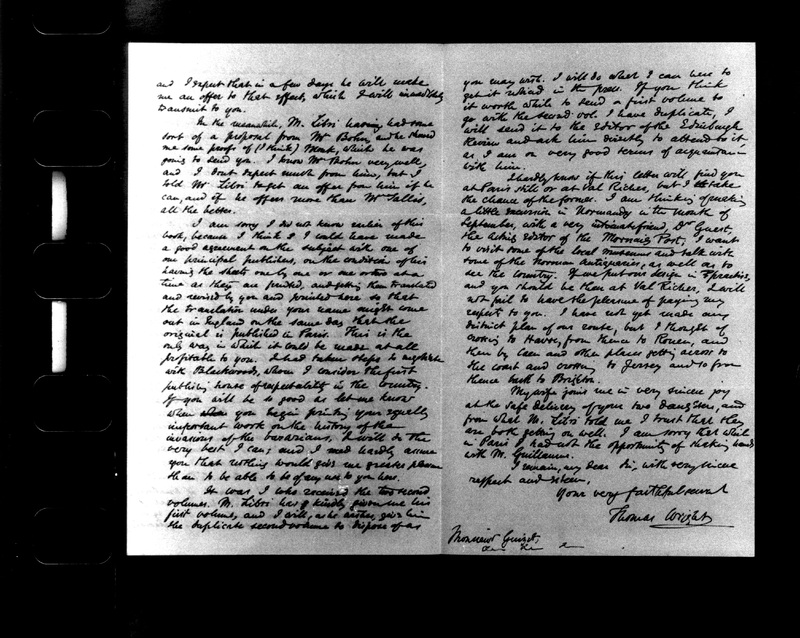 and I expect that in a few days he will make
me an offer to that effect, which I will immediately
transmit to you.
In the meanwhile, M. Libri having had some
sort of a proposal from Mr Bohn, and he showed
me some proofs of (I think) Monk, which he was
going to send you. I know Mr Bohn very well,
and I don't expect much from him, but I
told M. Libri to get an offer from him if he
can, and if he offers more than Mr Tallis,
all the better.
I am sorry I did not know earlier of this
book, because I think I could have made
a good agreement on the subject with one of
our principal publishers, on the condition of his
having the sheets one by one or one or two at a
time as they are printed, and getting them translated
and revised by you and printed here so that
the translation under your name might come
out in England on the same day that the
original is published in Paris. This is the
only way in which it could be made at all
profitable to you. I had taken steps to negotiate
with Blackwoods, whom I consider the first
publishing house of respectability in the country.
If you will be so good as let me know
when you begin printing your equally
important work on the history of the
invasions of the barbarians, I will do the
very best I can; and I need hardly assure
you that nothing would give me greater pleasure
than to be able to be of any use to you here.
It was I who received the two second
volumes. M. Libri has kindly given me his
first volume, and I will, as he wishes, give him
the duplicate second volume to dispose of as
you may wish. I will do what I can here to
get it noticed in the press. If you think
it worth while to send a first volume to
go with the second vol. I have duplicate, I
will send it to the Editor of the Edinburgh
Review and ask him directly to attend to it
as I am on very good terms of acquaintance
with him.
I hardly know if this letter will find you
at Paris still or at Val Richer, but I take
the chance of the former. I am thinking of making
a little excursion in Normandy in the month of
September, with a very intimate friend, Dr Guest,
the acting editor of the Morning Post, I want
to visit some of the local museums and talk with
some of the Norman antiquaries, as well as to
see the country. If we put our design in practice,
and you should be then at Val Richer, I will
not fail to have the pleasure of paying my
respect to you. I have not yet made any
distinct plan of our route, but I thought of
crossing to Havre, from thence to Rouen, and
then by Caen and other places getting across to
the coast and crossing to Jersey and so from
thence back to Brighton.
My wife joins me in very sincere joy
at the safe delivery of your two daughters, and
from what M. Libri told me I trust that they
are both getting on well. I am sorry that while
in Paris I had not the opportunity of shaking hands
with M. Guillaume.
I remain, my dear Sir, with very sincere
respect and esteem,
Your very faithful servant
Thomas Wright
Monsieur Guizot,